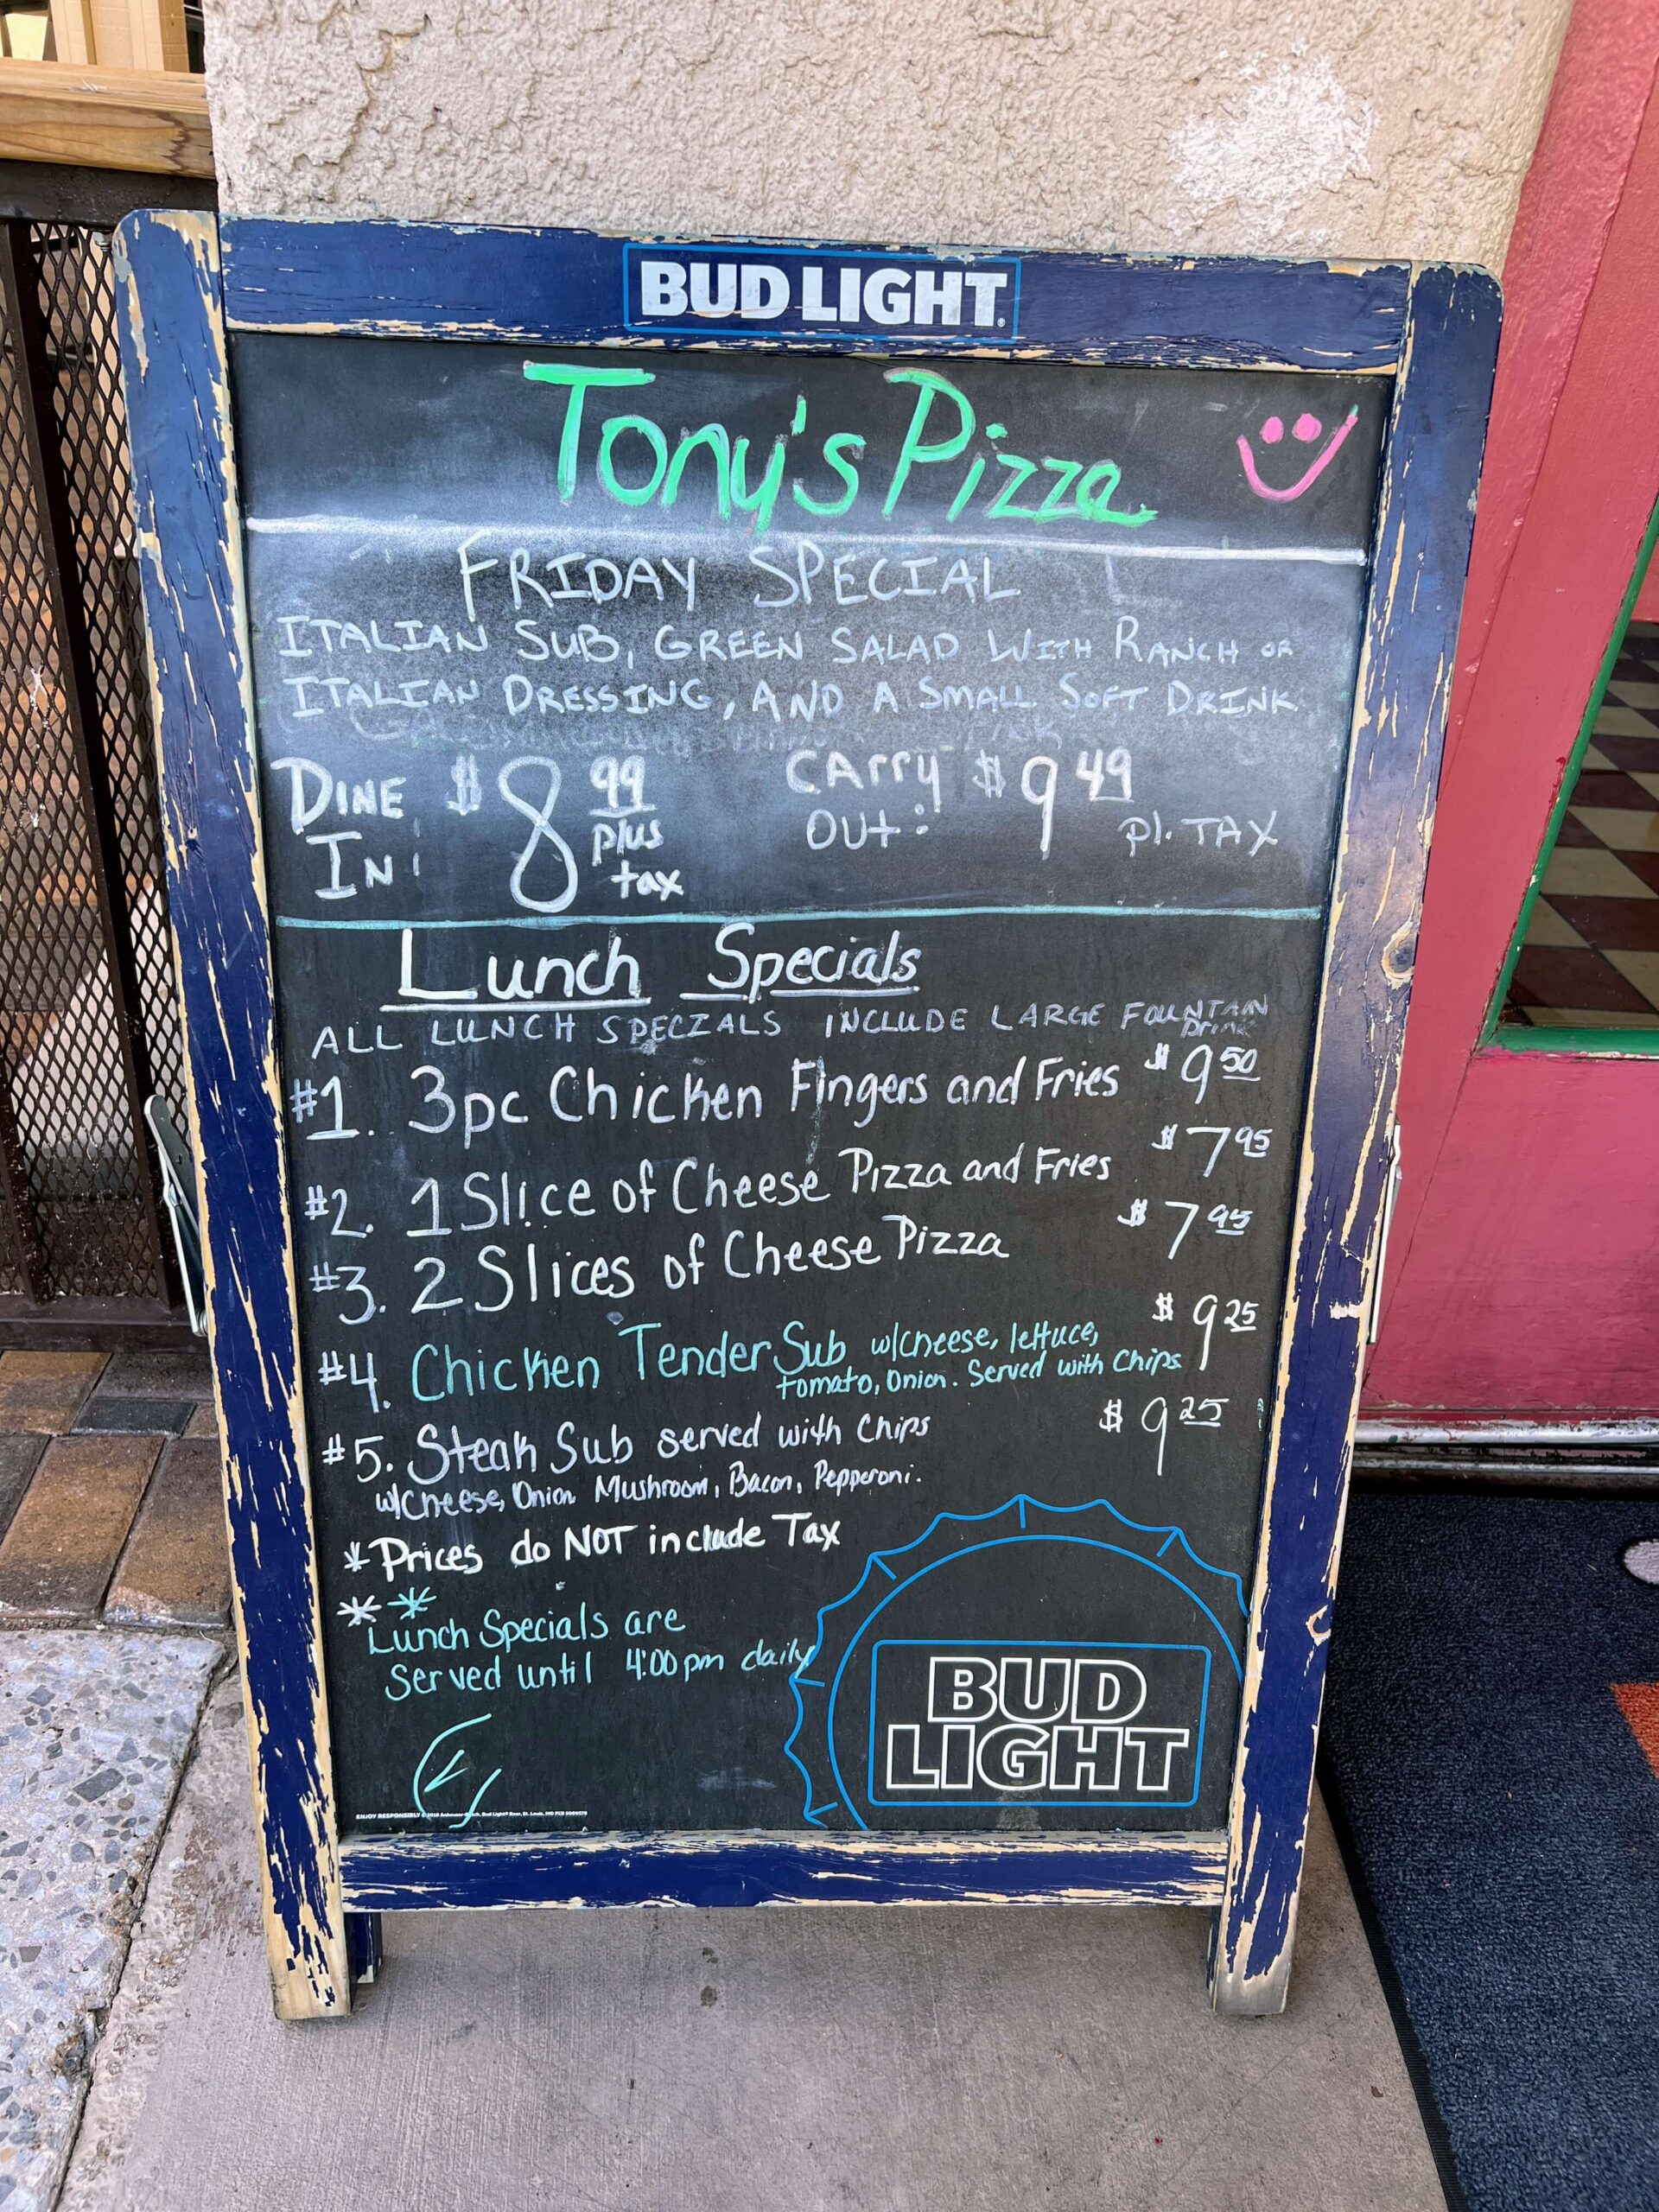 BUD LIGHT
Tony's Pizza
FRIDAY SPECIAL
ITALIAN SUB, GREEN SALAD WITH RANCH OR
ITALIAN DRESSING, AND A SMALL SOFT DRINK.
DINE IN: $8.99 plus tax
CArry OUt: $9.49 pl. TAX
Lunch Specials
ALL LUNCH SPECIALS INCLUDE LARGE FOUNTAIN Drink
#1. 3pc Chicken Fingers and Fries $9.50
#2. 1 Slice of Cheese Pizza and Fries $7.95
#3. 2 Slices of Cheese Pizza $7.95
#4. Chicken Tender Sub w/cheese, lettuce, $9.25
tomato, Onion. Served with Chips
#5. Steak Sub served with Chips $9.25
w/Cheese, Onion Mushroom, Bacon, Pepperoni.
*Prices do NOT include Tax
**
Lunch Specials are
Served until 4:00pm daily
BUD
LIGHT
ENJOY RESPONSIBLY